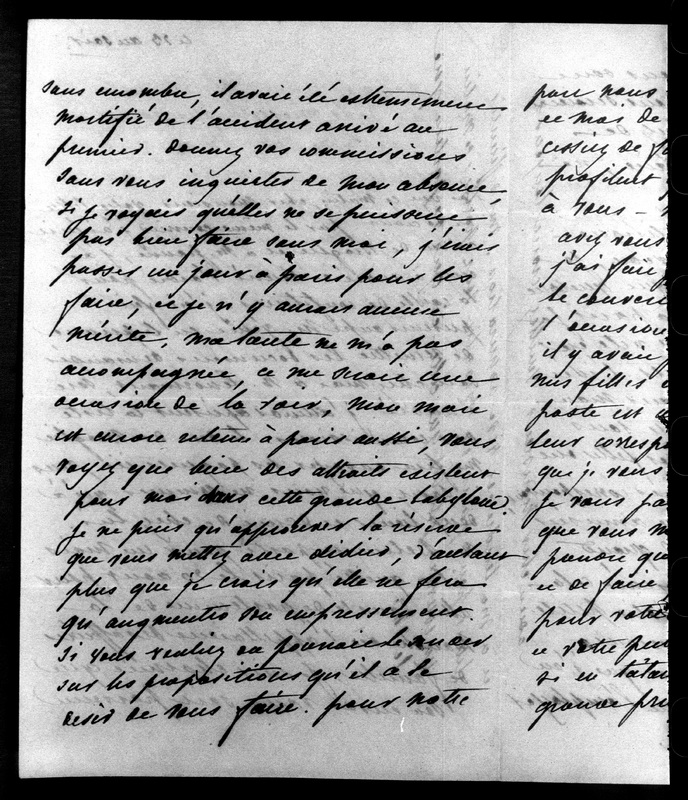 sans encombre, il avait été extrêmement
mortifié de l'accident arrivé au
premier. donnez vos commissions
sans vous inquieter de mon absence,
si je voyais qu'elles ne se puissent
pas bien faire sans moi, j'irais
passer un jour à paris pour les
faire, et je n'y aurais aucun
mérite, ma tante ne m'a pas
accompagnée, ce me serait une
occasion de la voir, mon mari
est encore retenu à paris aussi, vous
voyez que bien des attraits existent
pour moi dans cette grande babylone.
je ne puis qu'approuver la réserve
que vous mettez avec didier, d'autant
plus que je crois qu'elle ne fera
qu'augmenter son empressement.
si vous vouliez on pourrait le
sur les propositions qu'il a le
desir de vous faire. pour notre
pour nous
ce mois de
cessiez de
profitent
à vous –
avez vous
j'ai fait
le couvent
l'occasion
il y avait
nos filles
poste est
leur corresp
que je vous
je vous
que vous
pendre que
et de faire
pour votre
et votre
si en
grande